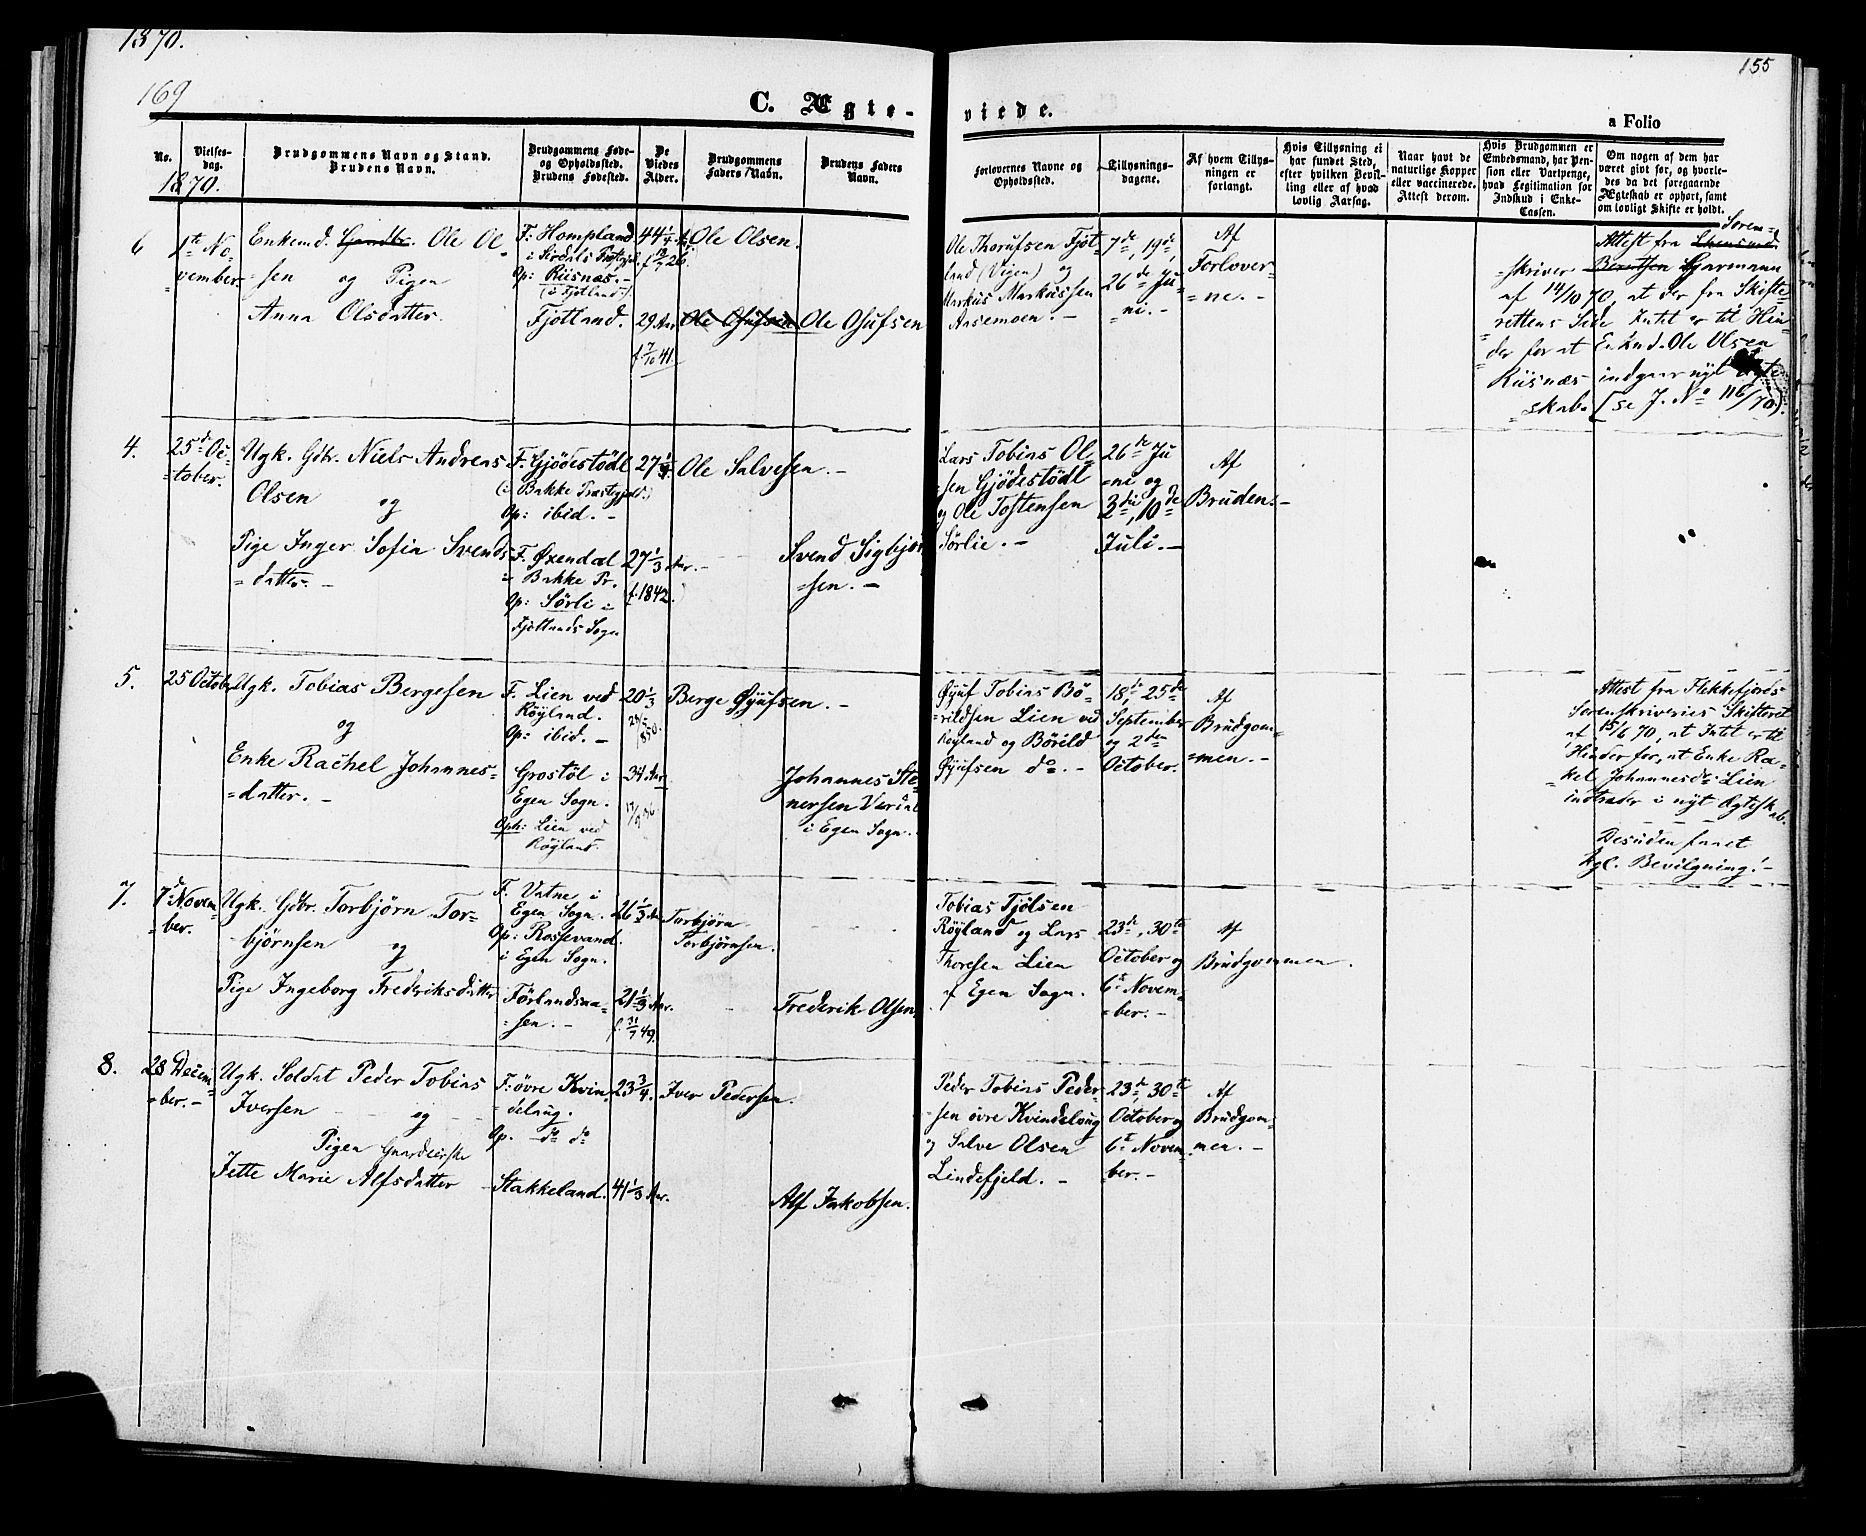 1870.
169
155
C. Ægte-
viede.
a Folio
No.
Vielses-
dag.
Brudgommens Navn og Stand.
Brudens Navn.
Brudgommens Føde-
og Opholdssted.
Brudens Fødested.
De
Viedes
Alder.
Brudgommens
Faders Navn.
Brudens Faders
Navn.
Forlovernes Navne og
Opholdssted.
Tillysnings-
dagene.
Af hvem Tillys-
ningen er
forlangt.
Hvis Tillysning ei
har fundet Sted,
efter hvilken Bevil-
ling eller af hvad
lovlig Aarsag.
Naar havt de
naturlige Kopper
eller vaccinerede.
Attest derom.
Hvis Brudgommen er
Embedsmand, har Pen-
sion eller Vartpenge,
hvad Legitimation for
Indskud i Enke-
Cassen.
Om nogen af dem har
været givt før, og hvorle-
des da det foregaaende
Ægteskab er ophørt, samt
om lovligt Skifte er holdt.
1870.
6
1te No-
vember.
Enkemd. Gaardbr. Ole Ol-
=sen og Pigen
Anna Olsdatter.
F: Hompland
i Sirdals Præstegj.
Op: Riisnæs.-
(i Fjotland.)
Fjotland.
44 1/4
29 Aar
f. 7/10 41.
Ole Olsen.
Ole Osufsen
Ole Osufsen
Ole Thorufsen Fjot-
land (Vigen) og
Markus Markussen
Aasemoen.-
7de, 19de,
26de Ju-
=ni.-
Af
Forlover-
=ne.-
Soren-
Attest fra
=skriver Berntsen Gjarmann
af 14/10 70, at der fra Skifte-
rettens Side Intet er til Hin-
der for at Enkmd. Ole Olsen
Riisnæs indgaar nyt Ægte-
skab. (se J. No 116/70).
4.
25de Oc-
=tober.
Ugk. Gbr. Niels Andreas
Olsen og
Pige Inger Sofia Svends-
=datter.-
F. Gjödestödl
(i Bakke Præstegjeld.)
Op: ibid.-
F. Øxendal
i Bakke Pr.
Op: Sörli i
Fjotlands Sogn
27 1/4
27 1/3 Aar.-
f. 1842.
Ole Salvesen.-
Svend Sigbjörn-
=sen.-
Lars Tobias Ol-
=sen Gjödestödl
og Ole Tostensen
Sørlie.-
26de Ju
=ni og
3die, 10de
Juli.-
Af
Bruden.-
5.
25 October
Ugk. Tobias Bergesen
og
Enke Rachel Johannes-
=datter.-
F. Lien ved
Röyland.
Op: ibid.-
Grostöl i
Egen Sogn.
Oph: Lien ved
Röyland.
20 1/3
34 Aar
Berge Øyufsen.-
Johannes Ste-
nersen
i Egen Sogn.
Øyuf Tobias Bö-
=rildsen Lien ved
Röyland og Börild
Øyufsen do.-
18de, 25de
September
og 2den
October.
Af
Brudgom-
=men.-
Attest fra Flekkefjords
Sorenskriveries Skifteret
af 15/6 70, at Intet er til
Hinder for, at Enke Ra-
kel Johannesdr Lien
indtræder i nyt Ægteskab.
Desuden faaet
kgl. Bevilgning!-
7.
7de Novem-
=ber.
Ugk. Gbr. Torbjørn Tor-
-bjørnsen og
Pige Ingeborg Frederiksdatter
F. Vatne i
Egen Sogn.
Op: Rossevand
i Egen Sogn.
Förlandsaa-
=sen.-
26 1/3 Aar
21 1/3 Aar.
f. 31/7 49.
Torbjørn
Torbjørnsen.
Frederik Olsen.
Tobias Tjölsen
Röyland og Lars
Thoresen Lien
af Egen Sogn.
23de, 30te
October og
6te Novem-
=ber.-
Af
Brudgommen.
8.
28 Decem-
=ber.-
Ugk. Soldat Peder Tobias
Iversen og
Pigen Gaardeierske
Jette Marie Alfsdatter
F: øvre Kvin-
=deloug.
Op. do do
Stakkeland.
23 3/4.
41 1/3 Aar.
Iver Pedersen.
Alf Jakobsen.
Peder Tobias Peder-
=sen øvre Kvindeloug
og Salve Olsen
Lindefjeld.-
23de, 30te
October og
6te Novem-
ber.-
Af
Brudgom-
men.-